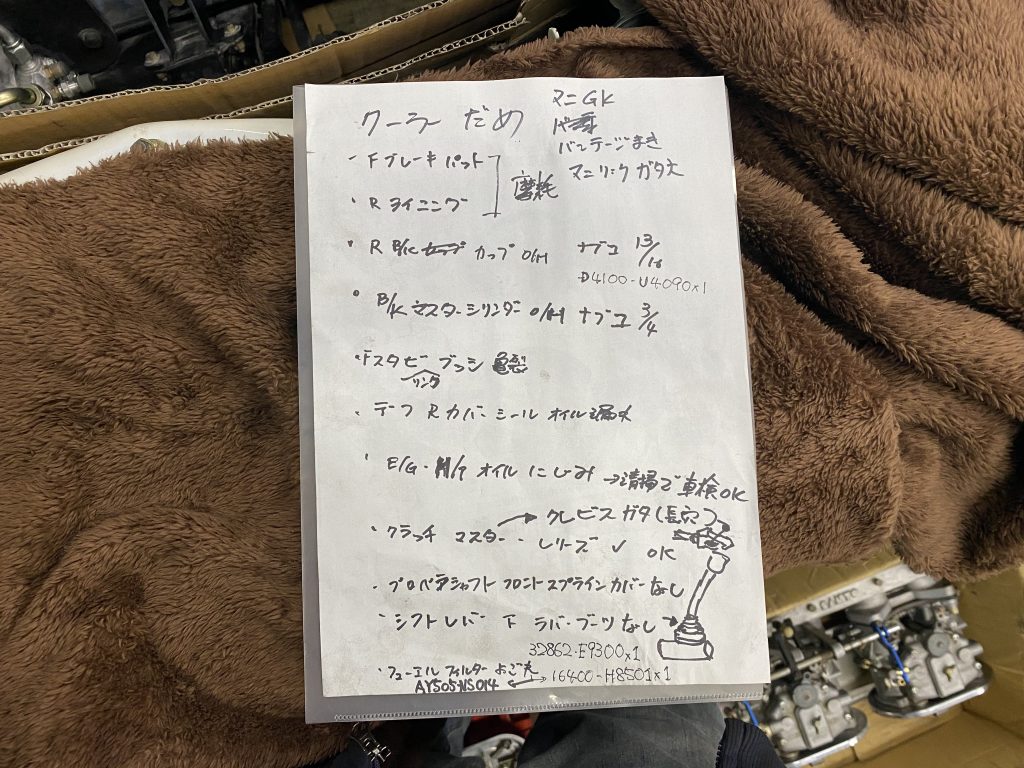 クーラー だめ
マニGK
バンテージまき
マニリーク ガタ大
・Fブレーキパット
・Rライニング
磨耗
・R B/K カップ O/H ナブコ 13/16
D4100-U4090x1
・B/Kマスターシリンダー O/H ナブコ 3/4
・Fスタビブッシ 亀裂
リンク
・デフ Rカバーシール オイル漏れ
・E/G・M/T オイル にじみ →清掃で車検OK
・クラッチ マスター → クレビス ガタ(長穴)
・レリーズ ✓ OK
・プロペラシャフト フロントスプラインカバーなし
・シフトレバー 下 ラバーブーツなし→
32862-E9300x1
・フューエルフィルターよごれ
AY505-NS014 ↔ 16400-H8501x1